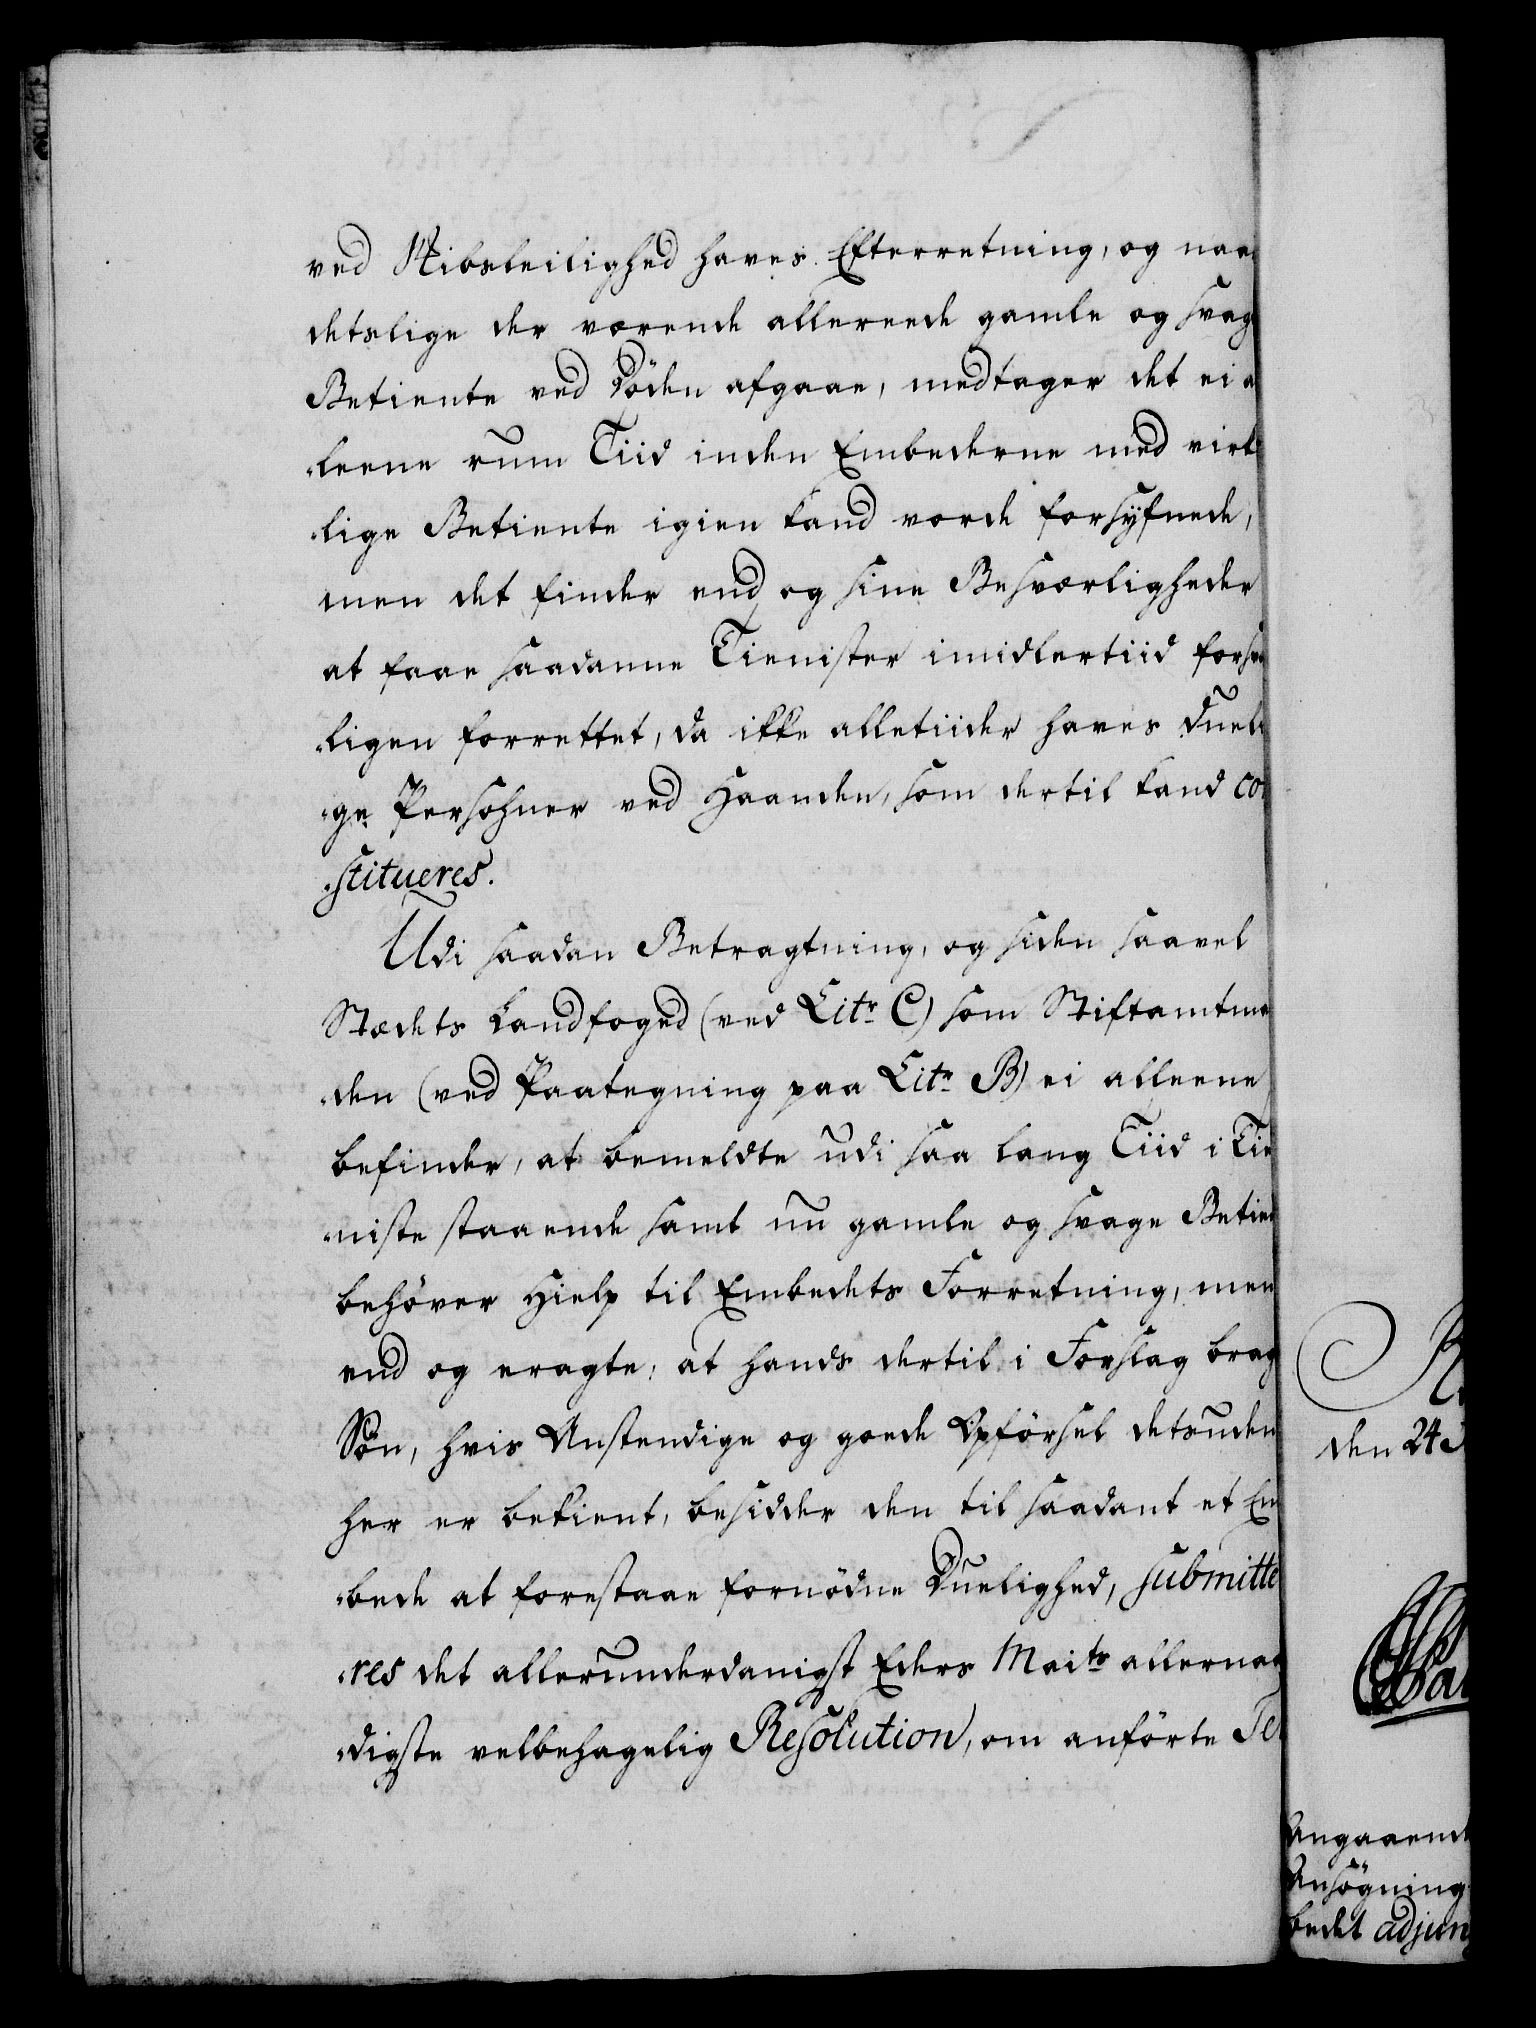 ved Skibsleilighed haves Efterretning, og naar
detslige der værende allereede gamle og svage
Betiente ved Döden afgaae, medtager det ei a
leene rum Tiid inden Embederne med virke
lige Betiente igien kand vorde forsÿfnede,
men det finder end og sine Besværligheder
at faae saadanne Tienister imidlertiid forsva
ligen forrettet, da ikke alletiider haves duel
ge Persohner ved Haanden, som dertil kand co
stitueres.
Udi saadan Betragtning, og siden saavel
Stædets Landfoged (ved Litr C) som Stiftamtma
den (ved Paategning paa Litr B) ei alleene
befinder, at bemeldte udi saa lang Tiid i Tie
niste staaende samt nu gamle og svage Betien
behöver Hielp til Embedets Forretning, men
end og eragte, at hands dertil i Forslag brag
Sön, hvis Anstendige og goede Opförsel detsuden
her er bekient, besidder den til saadant et Em
bede at forestaae fornödne Duelighed, submitte
res det allerunderdanigst Eders Maits allernaa
digste velbehagelig Resolution, om anförte Te
den 24
Angaaende
Ansögning
bedet adjun